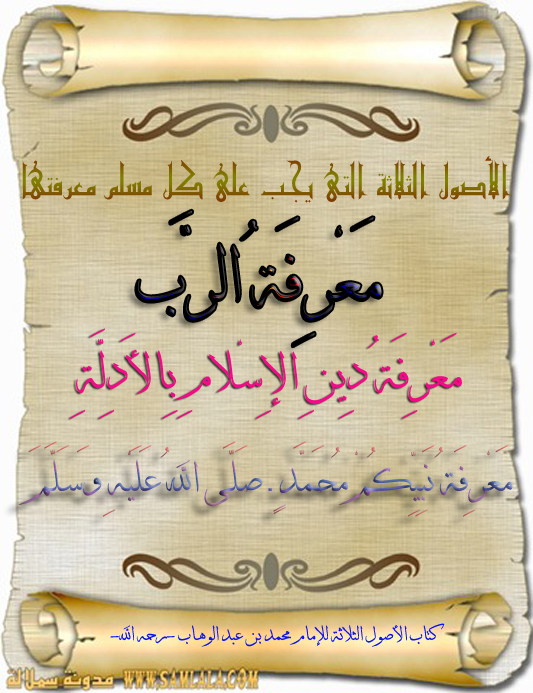 الأصول الثلاثة التي يجب على كل مسلم معرفتها
مَعْرِفَةُ الرَّب
مَعْرِفَةُ دِينِ الإِسْلامِ بِالأَدِلَّةِ
مَعْرِفَةُ نَبِيِّكُمْ مُحَمَّدٍ . صَلَّى اللهُ عَلَيْهِ وَسَلَّمَ
كتاب الأصول الثلاثة للإمام محمد بن عبد الوهاب -رحمه الله-
مدونة سملالة WWW.SAMLALA.COM